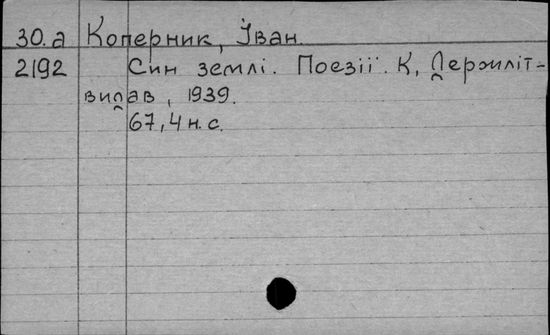 30.а Коперник, Іван.
2192 Син землі. Поезії. К, Держліт-
видав, 1939.
67,4 н. с.